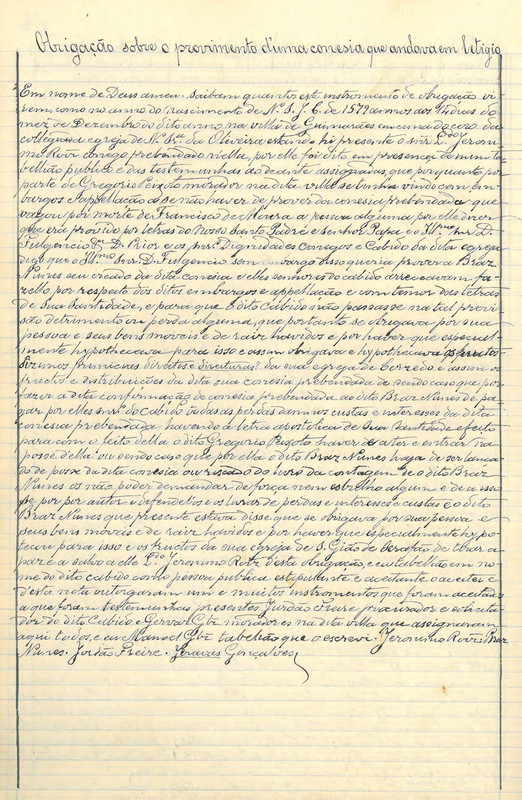 Obrigação sobre o provimento d'uma conesia que andava em letigio
Em nome de Deus amen. Saibam quantos este instrumento de obrigação vi-
rem, como no anno do Nascimento de N.º S. J. C. de 1579 annos aos 14 dias do
mez de Dezembro do dito anno na villa de Guimarães em cima do coro da
collegiada egreja de N.ª Sr.ª da Oliveira estando hi presente o snr. L.do Jeroni-
mo Roiz conego prebendado n'ella, por elle foi dito em presença de mim ta-
bellião publico e das testemunhas ao deante assignadas, que porquanto por
parte de Gregorio Peixoto morador na dita villa se tinha vindo com em-
bargos e appellação a se não haver de prover da conesia prebendada que
vagou por morte de Francisco de Moura a pessoa alguma por elle dizer
que era provido por letras do Nosso Santo Padre e senhor Papa e o Ill.mo Snr. D.
Fulgencio D. Prior e os Snrs. Dignidades conegos e Cabido da dita egreja
digo que o Ill.mo Snr. D. Fulgencio sem embargo disso queria prover a Braz
Nunes seu creado da dita conesia e elles senhores do cabido arreceavam fa-
zello por respeito dos ditos embargos e appellação e com temor das letras
de Sua Santidade, e para que o dito Cabido não passasse na tal provi-
são detrimento ou perda alguma, que portanto se obrigava por sua
pessoa e seus bens moveis e de raiz havidos e por haver que especial-
mente hypothecava para isso e assim obrigava e hypothecava os fructos
dizimos primicias direitos e directuras? da sua egreja de Cerzedo e assim os
fructos e distribuições da dita sua conesia prebendada de sendo caso que por
fazer a dita confirmação de conesia prebendada ao dito Braz Nunes de pa-
gar por elles snrs. do cabido todas as perdas damnos custas e interesses da dita
conesia prebendada havendo a letra apostolica de Sua Santidade effeito
para com o feito della o dito Gregorio Peixoto haver de ater e entrar na
posse della ou sendo caso que por ella o dito Braz Nunes haja de ser lança-
do de posse da dita conesia ou riscado do livro da contagem de o dito Braz
Nunes os não poder demandar de força nem esbulho algum e de a isso
se por por autor e defendel-os e os livrar de perdas e interesses e custas e o dito
Braz Nunes que presente estava disse que se obrigava por sua pessoa e
seus bens moveis e de raiz havidos e por haver que especialmente hypo-
tecou para isso e os fructos da sua egreja de S. Gião de Serafão de tirar a
paz e a salvo a elle L.do Jeronimo Roiz d'esta obrigação, e eu tabelião em no-
me do dito cabido como pessoa publica estipulante e aceitante o aceitei e
d'esta nota outorgaram um e muitos instromentos que foram aceitados
a que foram testemunhas presentes Jurdão Freire procurador e solicita-
dor do dito Cabido e Gervaz Glz moradores na dita villa que assignaram
aqui todos, e eu Manoel Glz tabelião que o escrevi. Jeronimo Roiz. Braz
Nunes. Jordão Freire. Jeravas Gonçalves